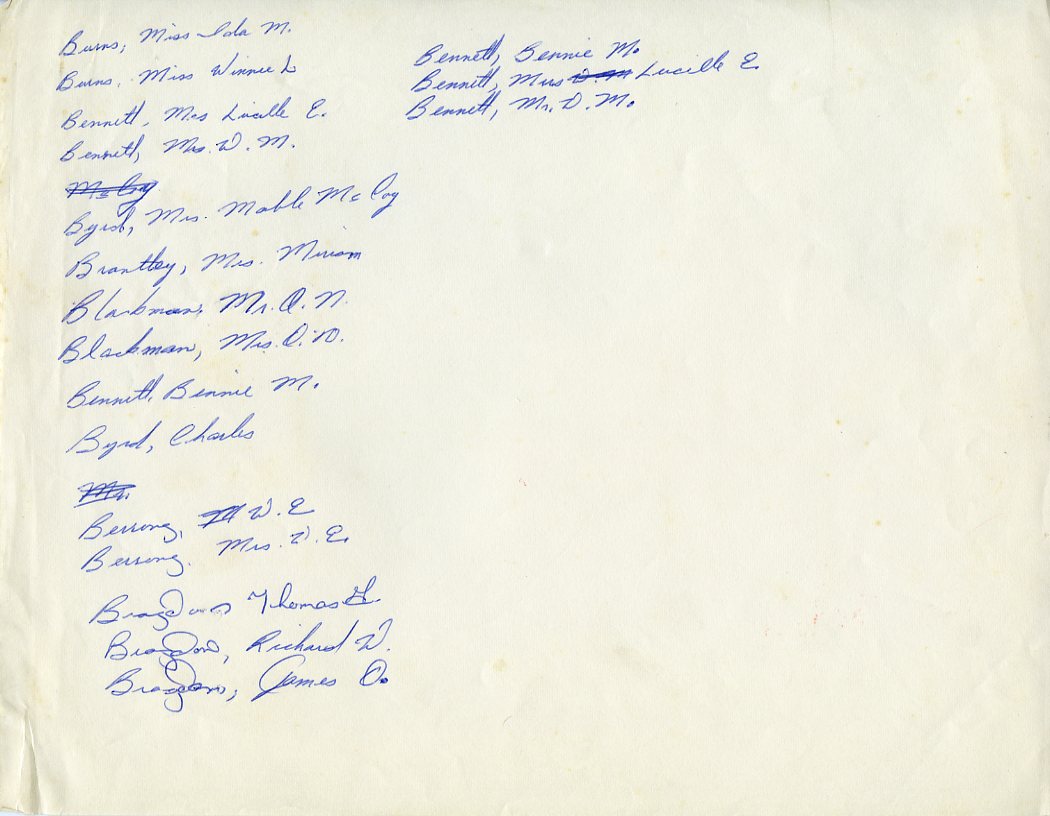 Burns, Miss Ida M.
Burns, Miss Winnie L
Bennett, Mrs Lucille E.
Bennett, Mrs. D. M.
McCoy
Byrd, Mrs. Mable McCoy
Brantley, Mrs. Miriam
Blackman, Mr. O. N.
Blackman, Mrs. O. N.
Bennett, Bennie M.
Byrd, Charles
Mr.
Berrong, W. E
Berrong, Mrs. W. E.
Bragdon, Thomas G.
Bragdon, Richard W.
Bragdon, James O.
Bennett, Bennie M.
Bennett, Mrs D. M Lucille E.
Bennett, Mr. D. M.